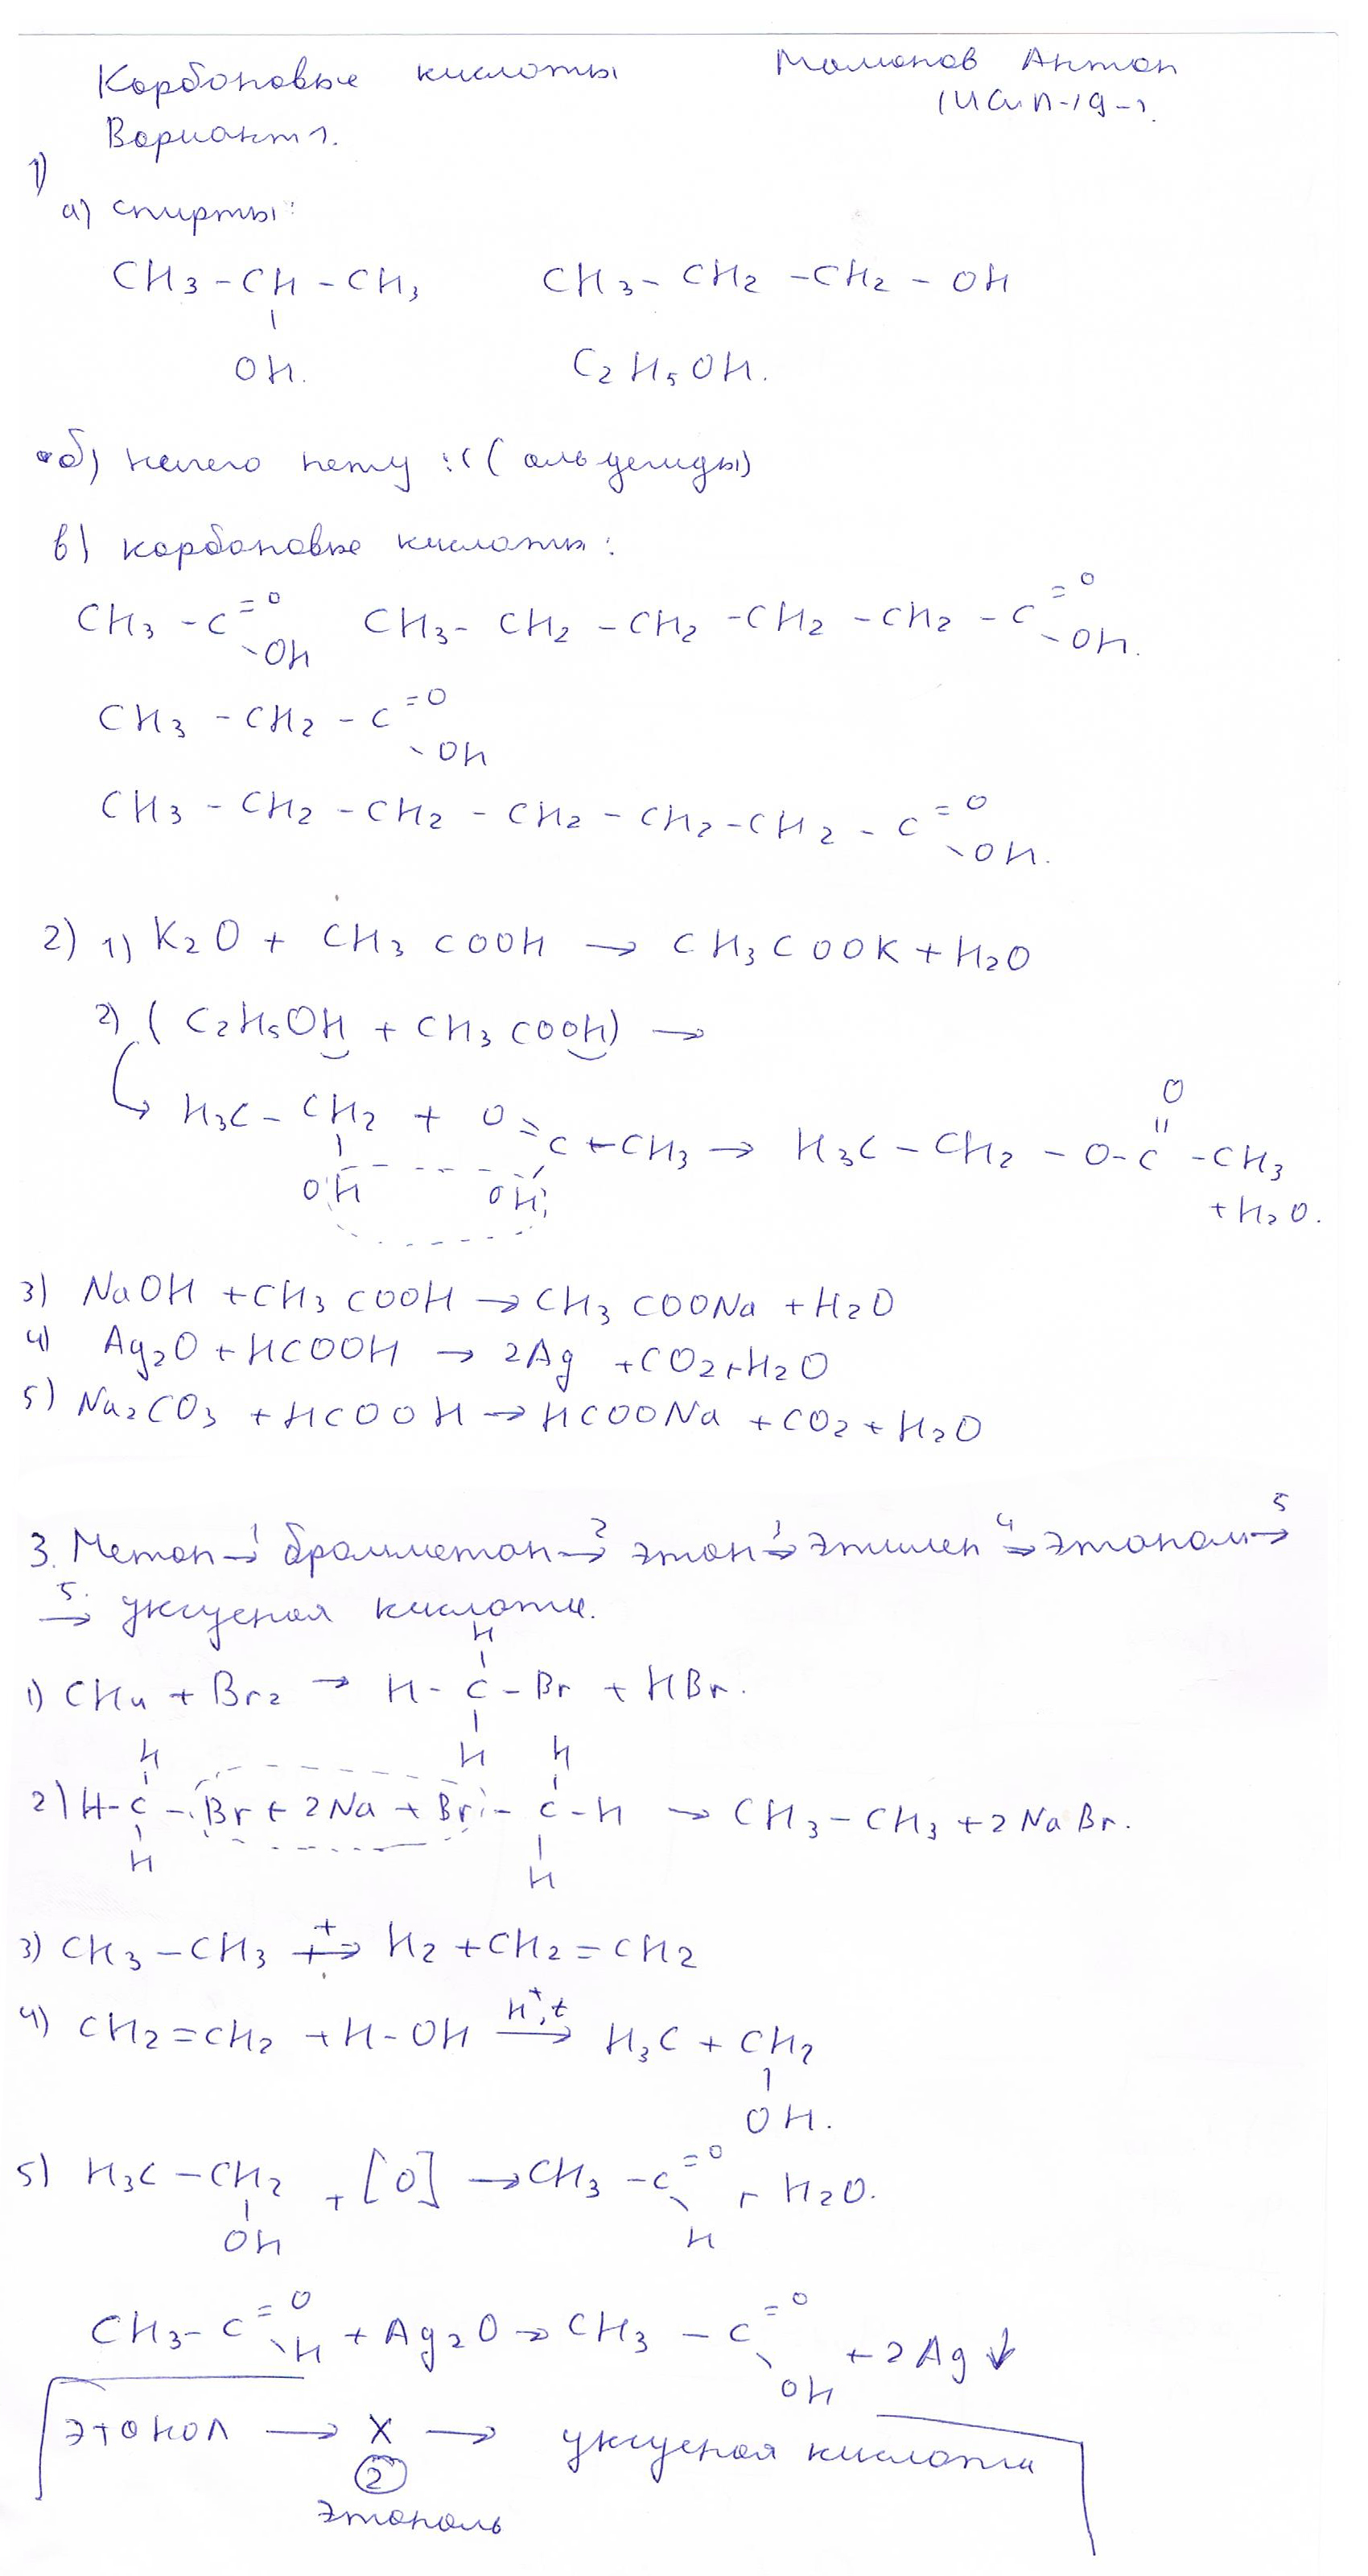 Карбоновые кислоты Мамонов Антон
Вариант 1.
1)
а) спирты:
CH3 - CH - CH3 CH3 - CH2 - CH2 - OH
|
OH. C2H5OH.
б) нечего нету :(( альдегиды)
в) карбоновые кислоты:
CH3 - C =O -OH CH3 - CH2 - CH2 - CH2 - CH2 - C =O -OH.
CH3 - CH2 - C =O -OH
CH3 - CH2 - CH2 - CH2 - CH2 - CH2 - C =O -OH.
2) 1) K2O + CH3COOH → CH3COOK + H2O
2) (C2H5OH + CH3COOH) →
H3C - CH2 + O=C-CH3 → H3C - CH2 - O - C - CH3
OH OH O
+ H2O.
3) NaOH + CH3COOH → CH3COONa + H2O
4) Ag2O + HCOOH → 2Ag + CO2 + H2O
5) Na2CO3 + HCOOH → HCOONa + CO2 + H2O
3. Метан →1 бромметан →2 этан →3 этилен →4 этанол →5
5. → уксусная кислота.
H
|
1) CH4 + Br2 → H - C - Br + HBr.
|
H
H H
2) H - C - Br + 2Na + Br - C - H → CH3 - CH3 + 2NaBr.
H H
3) CH3 - CH3 → H2 + CH2 = CH2
4) CH2 = CH2 + H - OH H+, t → H3C + CH2
|
OH.
5) H3C - CH2 + [O] → CH3 - C =O -H + H2O.
|
OH
CH3 - C =O -H + Ag2O → CH3 - C =O -OH + 2Ag↓
этанол → X → уксусная кислота
2
этаналь